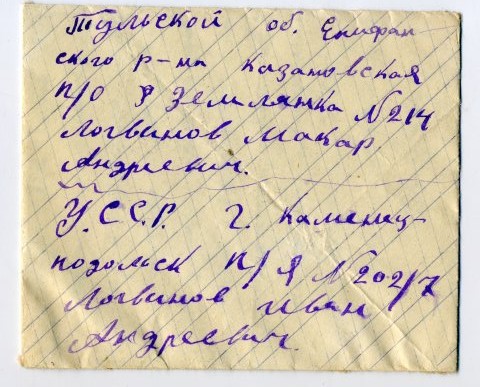 Тульской об. Епифан
ского р-на Казановская
п/о Землянка № 214
Логвинов Макар
Андриевич.
У.С.С.Р. г. Каменец-
подольск п/я № 202/7
Логвинов Иван
Андреевич.